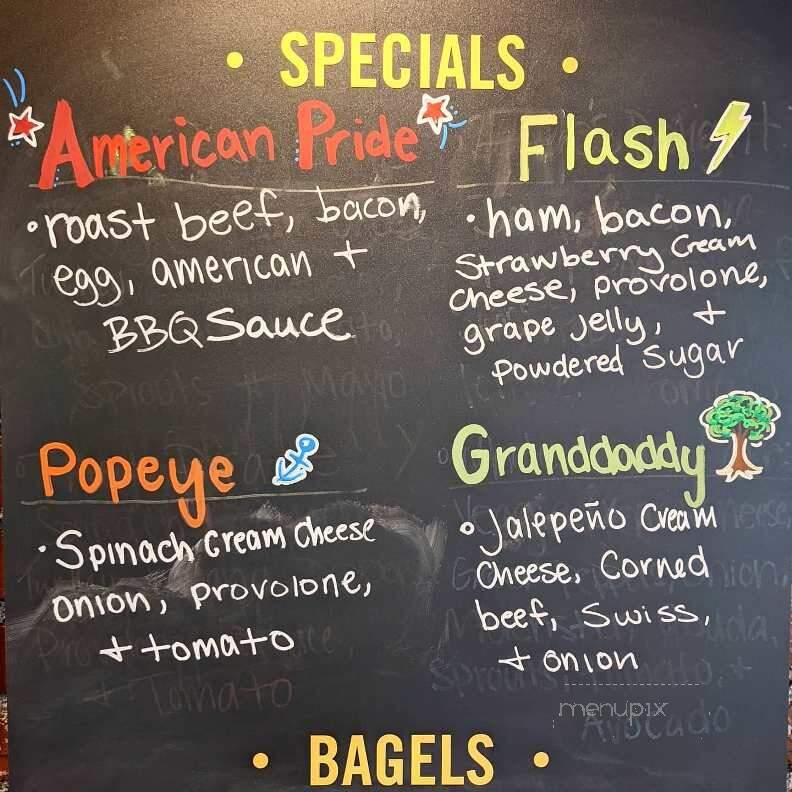 • SPECIALS •
American Pride
• roast beef, bacon,
egg, american +
BBQ Sauce
Flash
• ham, bacon,
Strawberry Cream
cheese, provolone,
grape jelly, +
Powdered Sugar
Popeye
• Spinach Cream Cheese
onion, provolone,
+ tomato
Granddaddy
• Jalepeño Cream
Cheese, Corned
beef, Swiss,
+ onion
menupix
• BAGELS •